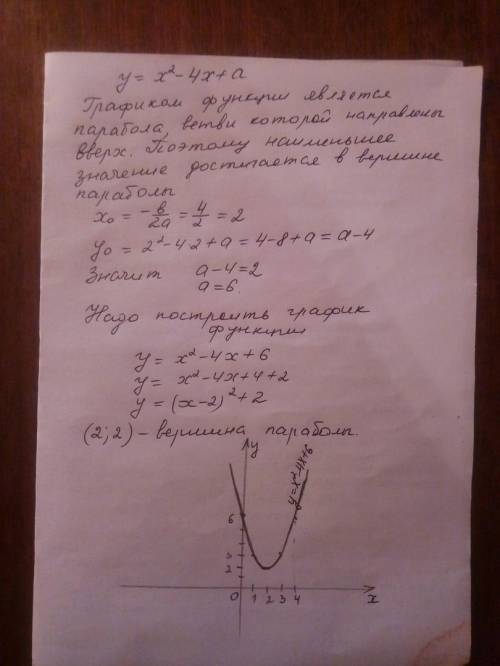 y = x² - 4x + a
Графиком функции является
парабола, ветви которой направлены
вверх. Поэтому наименьшее
значение достигается в вершине
параболы
x₀ = -в/2a = 4/2 = 2
y₀ = 2² - 4·2 + a = 4 - 8 + a = a - 4
Значит a - 4 = 2
a = 6.
Надо построить график
функции
y = x² - 4x + 6
y = x² - 4x + 4 + 2
y = (x - 2)² + 2
(2; 2) - вершина параболы.
y
y = x² - 4x + 6
6
3
2
0 1 2 3 4 x